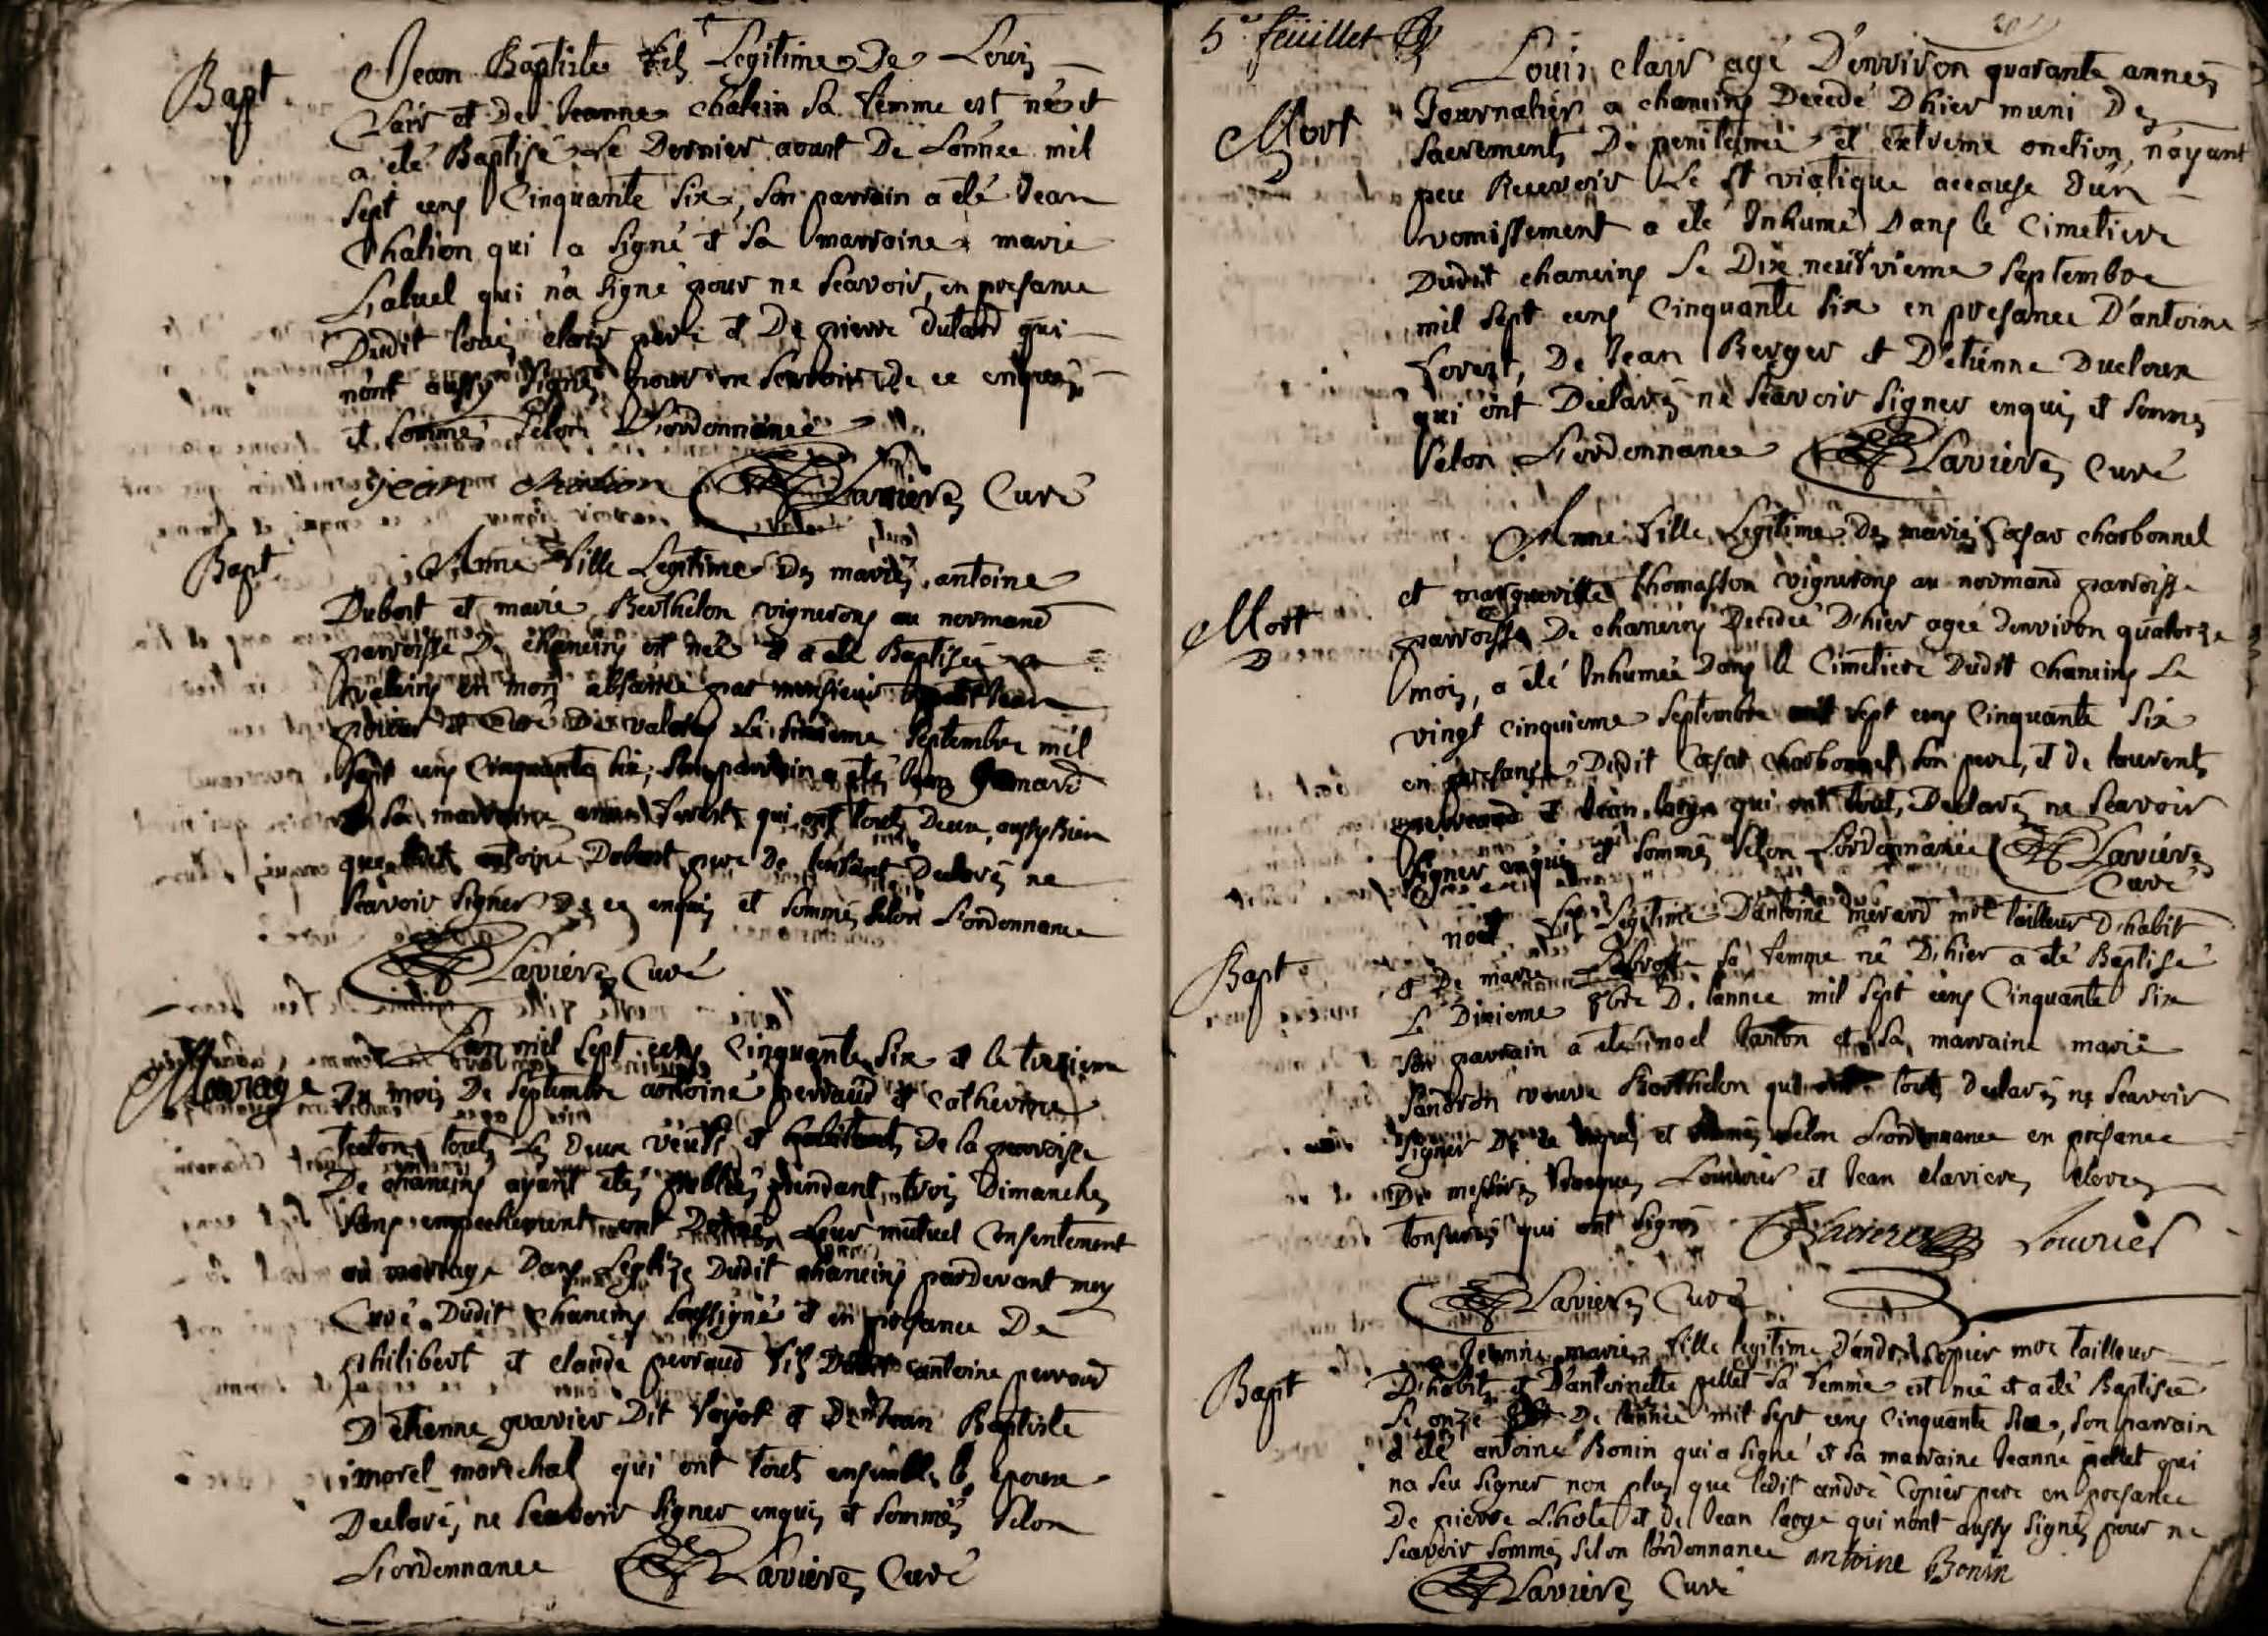 Bapt
Jean Baptiste fils Legitime De Louis
Clair et De Jeanne chalein sa femme est né et
a eté Baptisé Le Dernier aoust De Lannée mil
sept cens Cinquante six, son parrain a eté Jean
Chalion qui a signé et sa marraine marie
qui n'a signé pour ne scavoir, en presance
Dudit Louis clair pere et De pierre dutard qui
nont aussy signés pour ne scavoir De ce enquis
et sommés selon L'ordonnance
jean chalion Lavieres Curé
Bapt
Anne fille Legitime Des mariés antoine
Dubost et marie Berthelon vignerons au normand
parroisse De chaneins est née et a eté Baptisée
en mon absance par monsieur
et Curé De valeins Le septembre mil
sept cens Cinquante six, son parrain a eté
et sa marraine qui ont touts Deux, aussy bien
que ledit antoine Dubost pere De lenfant Declarés ne
scavoir signer De ce enquis et sommés selon Lordonnance
Lavieres Curé
Mariage
Lan mil sept cens Cinquante six et le treizieme
Du mois De septembre antoine perraud et Catherine
touts Les Deux veufs et habitants De la parroisse
De chaneins ayant etés publiés pendant trois Dimanches
sans empechement ont Leur mutuel Consentement
au mariage Dans Leglize Dudit chaneins pardevant moy
Curé Dudit chaneins soussigné et en presance De
philibert et claude perraud fils Dudit antoine perraud
D'etienne gravier Dit et De Jean Baptiste
morel marechal qui ont touts ensemble lepoux
Declarés ne scavoir signer enquis et sommés selon
Lordonnance Lavieres Curé
5e feüillet
Mort
Louis clair agé D'environ quarante années
Journalier a chaneins Decedé D'hier muni Des
sacrements De penitence et extreme onction, n'ayant
peu Recevoir Le st viatique acause D'un
vomissement a eté Inhumé Dans le Cimetiere
Dudit chaneins Le Dix neufvieme septembre
mil sept cens Cinquante six en presance D'antoine
De Jean Berger et D'etienne Ducloux
qui ont Declarés ne scavoir signer enquis et sommés
selon Lordonnance Lavieres Curé
Mort
Anne fille Legitime Des mariés Cesar charbonnel
et margueritte thomasson vignerons au normand parroisse
parroisse De chaneins Decedée D'hier agée denviron quatorze
mois, a eté Inhumée Dans le Cimetiere Dudit chaneins Le
vingt cinquieme septembre mil sept cens Cinquante six
en presance Dudit Cesar charbonnel son pere, et de laurent
et Jean large qui ont touts Declarés ne scavoir
signer enquis et sommés selon Lordonnance Lavieres
Curé
Bapt
noel fils Legitime D'antoine merard me tailleur D'habit
et De marie sa femme né D'hier a eté Baptisé
Le Dixieme 8bre De lannée mil sept cens Cinquante six
son parrain a eté noel et sa marraine marie
veuve Berthelon qui ont touts declarés ne scavoir
signer De ce enquis et sommés selon Lordonnance en presance
De messires Jacques Louvrier et Jean clavieres clercs
tonsurés qui ont signés Clavieres Louvrier
Lavieres Curé
Bapt
Jeanne marie fille legitime D'andré Copier me tailleur
D'habits et D'antoinette pellet sa femme est née et a eté Baptisée
Le onze De lannée mil sept cens Cinquante six, son parrain
a eté antoine Bonin qui a signé et sa marraine Jeanne pellet qui
na sçu signer non plus que ledit andré Copier pere en presance
De pierre Lhote et de Jean large qui nont aussy signés pour ne
scavoir sommés selon l'ordonnance antoine Bonin
Lavieres Curé